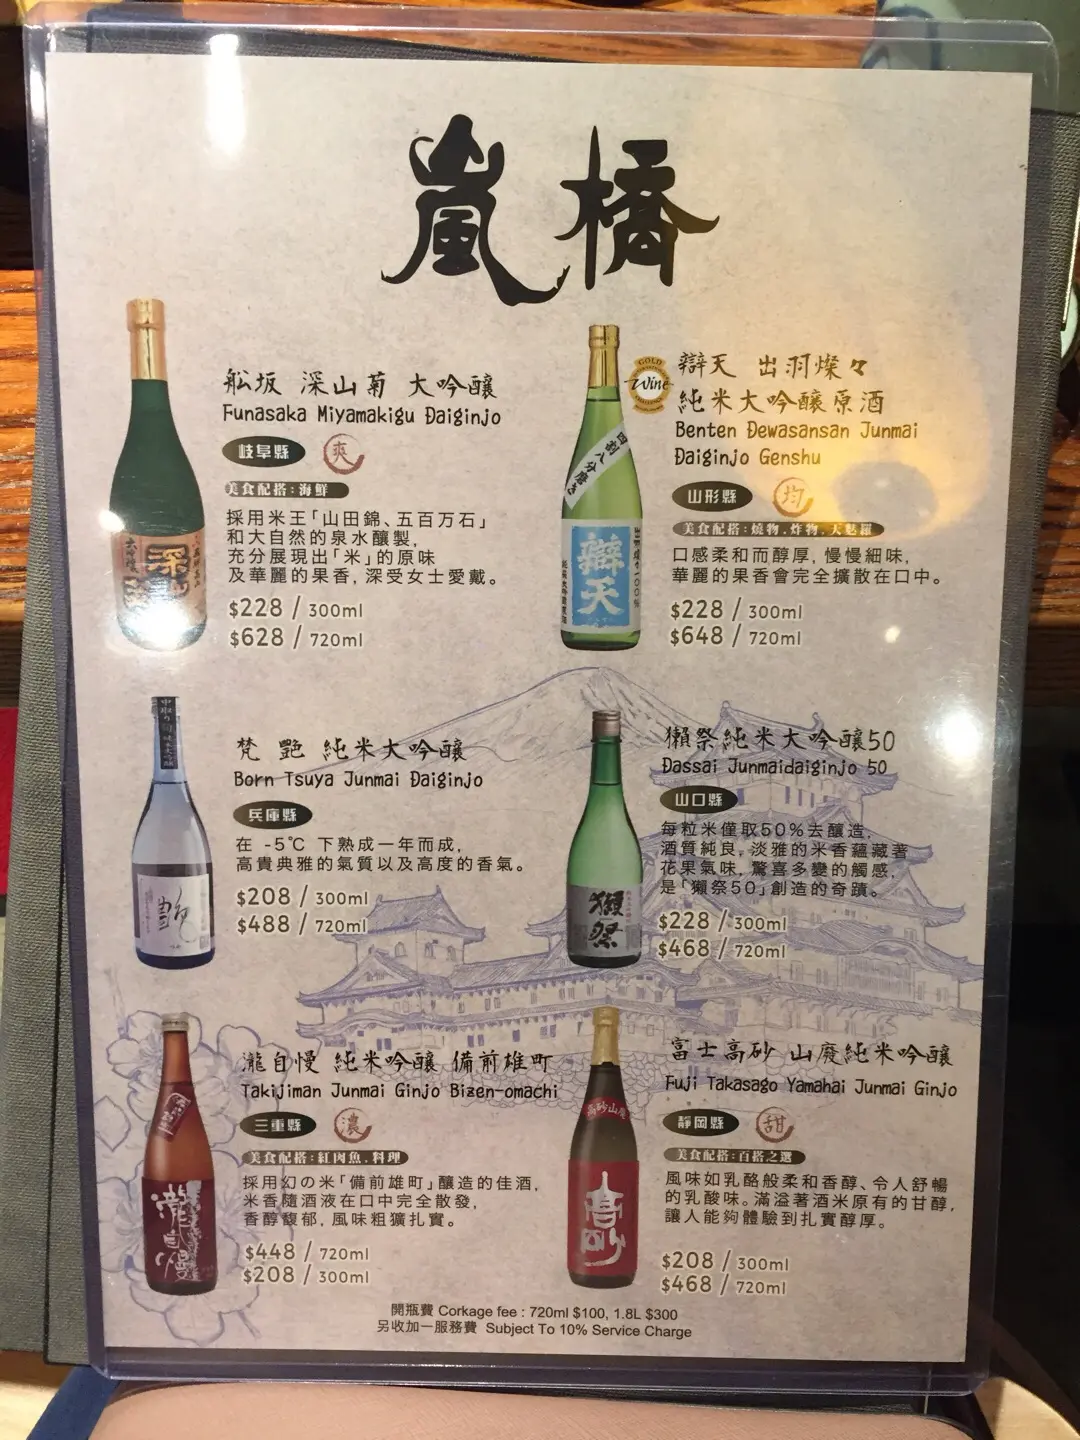 嵐橋
舩坂 深山菊 大吟醸
Funasaka Miyamakigu Daiginjo
岐阜縣 爽
美食配搭：海鮮
採用米王「山田錦、五百万石」
和大自然的泉水釀製，
充分展現出「米」的原味
及華麗的果香，深受女士愛戴。
$228 / 300ml
$628 / 720ml
GOLD
Wine
辯天 出羽燦々
純米大吟醸原酒
Benten Dewasansan Junmai
Daiginjo Genshu
山形縣 均
美食配搭：燒物．炸物．天麩羅
口感柔和而醇厚，慢慢細味，
華麗的果香會完全擴散在口中。
$228 / 300ml
$648 / 720ml
四割八分磨き
辯天
梵 艷 純米大吟醸
Born Tsuya Junmai Daiginjo
兵庫縣
在 -5℃ 下熟成一年而成，
高貴典雅的氣質以及高度的香氣。
$208 / 300ml
$488 / 720ml
艶
獺祭純米大吟醸50
Dassai Junmaidaiginjo 50
山口縣
每粒米僅取50%去釀造，
酒質純良，淡雅的米香蘊藏著
花果氣味，驚喜多變的觸感，
是「獺祭50」創造的奇蹟。
$228 / 300ml
$468 / 720ml
獺祭
瀧自慢 純米吟醸 備前雄町
Takijiman Junmai Ginjo Bizen-omachi
三重縣 濃
美食配搭：紅肉魚．料理
採用幻の米「備前雄町」釀造的佳酒，
米香隨酒液在口中完全散發，
香醇馥郁，風味粗獷扎實。
$448 / 720ml
$208 / 300ml
瀧自慢
富士高砂 山廃純米吟醸
Fuji Takasago Yamahai Junmai Ginjo
靜岡縣 甜
美食配搭：百搭之選
風味如乳酪般柔和香醇、令人舒暢
的乳酸味。滿溢著酒米原有的甘醇，
讓人能夠體驗到扎實醇厚。
$208 / 300ml
$468 / 720ml
高砂山廃
高砂
開瓶費 Corkage fee : 720ml $100, 1.8L $300
另收加一服務費 Subject To 10% Service Charge